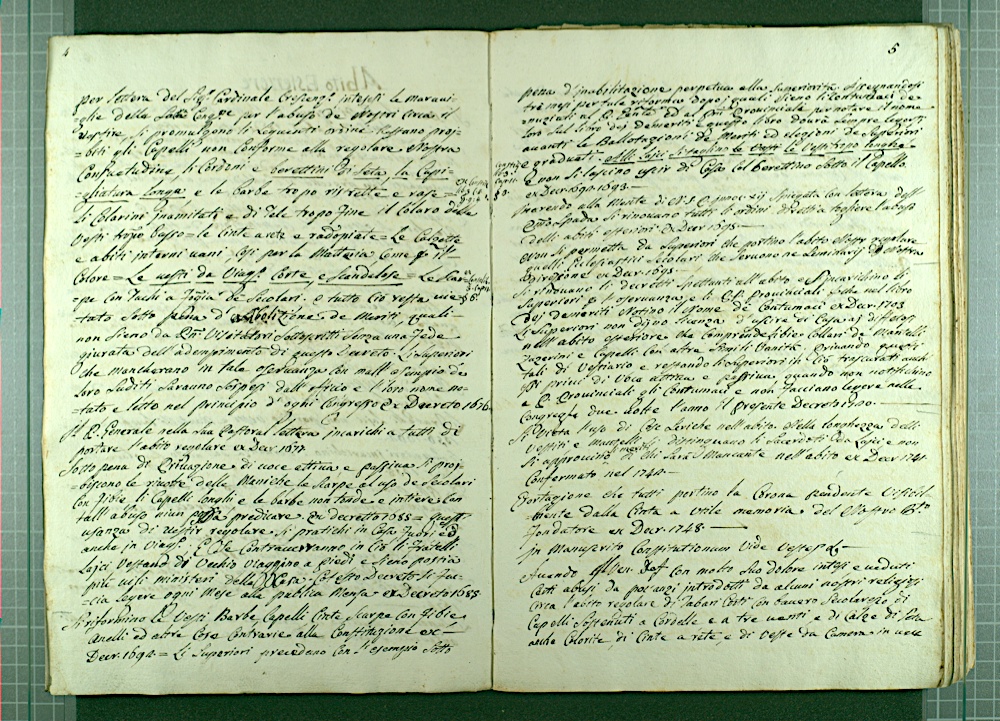 4
per lettera del Sig.r Cardinale Crescenzi intesi le maravi-
glie della Santa Congne per l'abuso de Nostri circa il
Vestire si promulgono li seguenti ordini restano proj-
=biti li Capelli non conforme alla regolare Nostra
Consuetudine li Cordoni e berettini di seta, la Capi-
=gliatura longa e le barbe tropo ristrette e rase=
li Colarini inamitati e di Tele tropo fine il Colaro della
Vesti tropo basso= le Cinte a rete e radopiate= Le Calzette
e abiti interni vani Così per la Materia Come p il
Colore= Le vesti da Viag.o Corte, e Scandalose= Le Scar=
=pe con a fogia de Secolari. e tutto Ciò resta vie=
tato Sotto pena d'Abolizione de Meriti, quali
non sieno da Visitatori Sottoscritti Senza una fede
giurata dell'adempimento di questo Decreto. Li Superiori
che mancherano in tale osservanza con mall'esempio de
loro Suditi Sarauno Sospesi dall'officio e l'loro nome no-
=tato e letto nel principio d'ogni Congresso ex Decreto 1676
Il P. Generale nella sua Pastoral lettera incarichi a tutti di
portare l'abito regolare ex Decr 1677
Sotto pena di Privazione di voce attiva e passiva Si proj-
=biscono le rivolte delle Maniche le Scarpe al uso de Secolari
Con fibie, li Capelli longhi e le barbe non tonde e intiere con
tall'abuso niun possa predicare. ex decretto 1685= questa
usanza di vestir regolare Si pratichi in Casa, fuori ed
anche in Viaggi. E che Contraverranno in Ciò li Fratelli
Lajci Vestano di Vechio viaggino a piedi e sieno postia
più vili ministeri della Casa. Cotesto Decreto Si fac-
=cia legere ogni Mese alla publica Mensa ex Decreto 1688
Si riformino le Vesti Barbe Capelli Cinte Scarpe con fibie
Anelli ed altre Cose Contrarie alla Constitutione ex=
Decr. 1694.= Li Superiori precedano con l'esempio Sotto
5
pena d'inabilitazione perpetua alla Superiorità assegnandosi
tre mesi per tale riforma dopo i quali sieno li Contumaci de-
=nunciati al P. Genle ed al Provinciale per notare il nome
loro Sul libro dej demeriti e questo libro dovrà sempre legersi
avanti le Ballotazioni de Meriti ed elezioni de Superiori
e graduati. alli Lajci Si taglino le Vesti le Vesti tropo longhe
e non Si lascino uscir di Casa col berettino sotto il Capello
ex Decr. 1692. 1693.—
Inerendo alla Mente di N.S. Innoc. xij Spiegata con lettera dell'
Spada si rinovano tutti li ordini diretti a togliere l'abuso
delli abiti esteriori ex Decr 1695.—
Non si permetta da Superiori che portino l'abito nostro regolare
quelli Eclesiastici Secolari che Servono ne Seminarij di Nostra
Direzione ex Decr 1695.—
Si rinovano li decretti Spettanti all'abito e S'incarichino li
Superiori p l'osservanza, e li P.P. Provinciali, che nel libro
Dej demeriti Notino il Nome de Contumaci ex Decr 1703
Li Superiori non dijno licenza d'uscire di Casa aj difetosi
nell'abito esteriore che Comprende fibie Collari de Mantelli
Zazerini e Capelli con altre Simili Vanità privando questi
tali di Vestiario e restando li Superiori in Ciò trascurati anch
essi privi di Voce attiva e passiva quando non notifichino
a P. Provinciali gli Contumaci e non facciano legere nelle
Congreghe due volte l'anno il Presente Decreto 1700.—
Si Vieta l'uso di Cose Laiche nell'abito. Nella longhezza delli
Vestiti e mantelli si distinguano li Sacerdoti da Lajci e non
Si approvino i meriti di chi Sarà Mancante nell'abito ex Decr 1741
Confermato nel 1744.—
Esortazione che tutti portino la Corona pendente Visibil-
=mente dalla Cinta a Utile memoria del Nostro B.to
Fondatore ex Decr. 1748.—
In Manuscrito Constitutionum Vide Vestes
Avendo il Ven. Def con molto suo dolore intesi e veduti
Certi abusi da poc'anzi introdotti da alcuni nostri religiosi
circa l'abito regolare di Tabari Corti con bavero Secolaresco di
Capelli Sostenuti a Cordelle e a tre venti e di Calze di Seta
anche Colorite, di Cinte a rete, e di Veste da Camera in vece